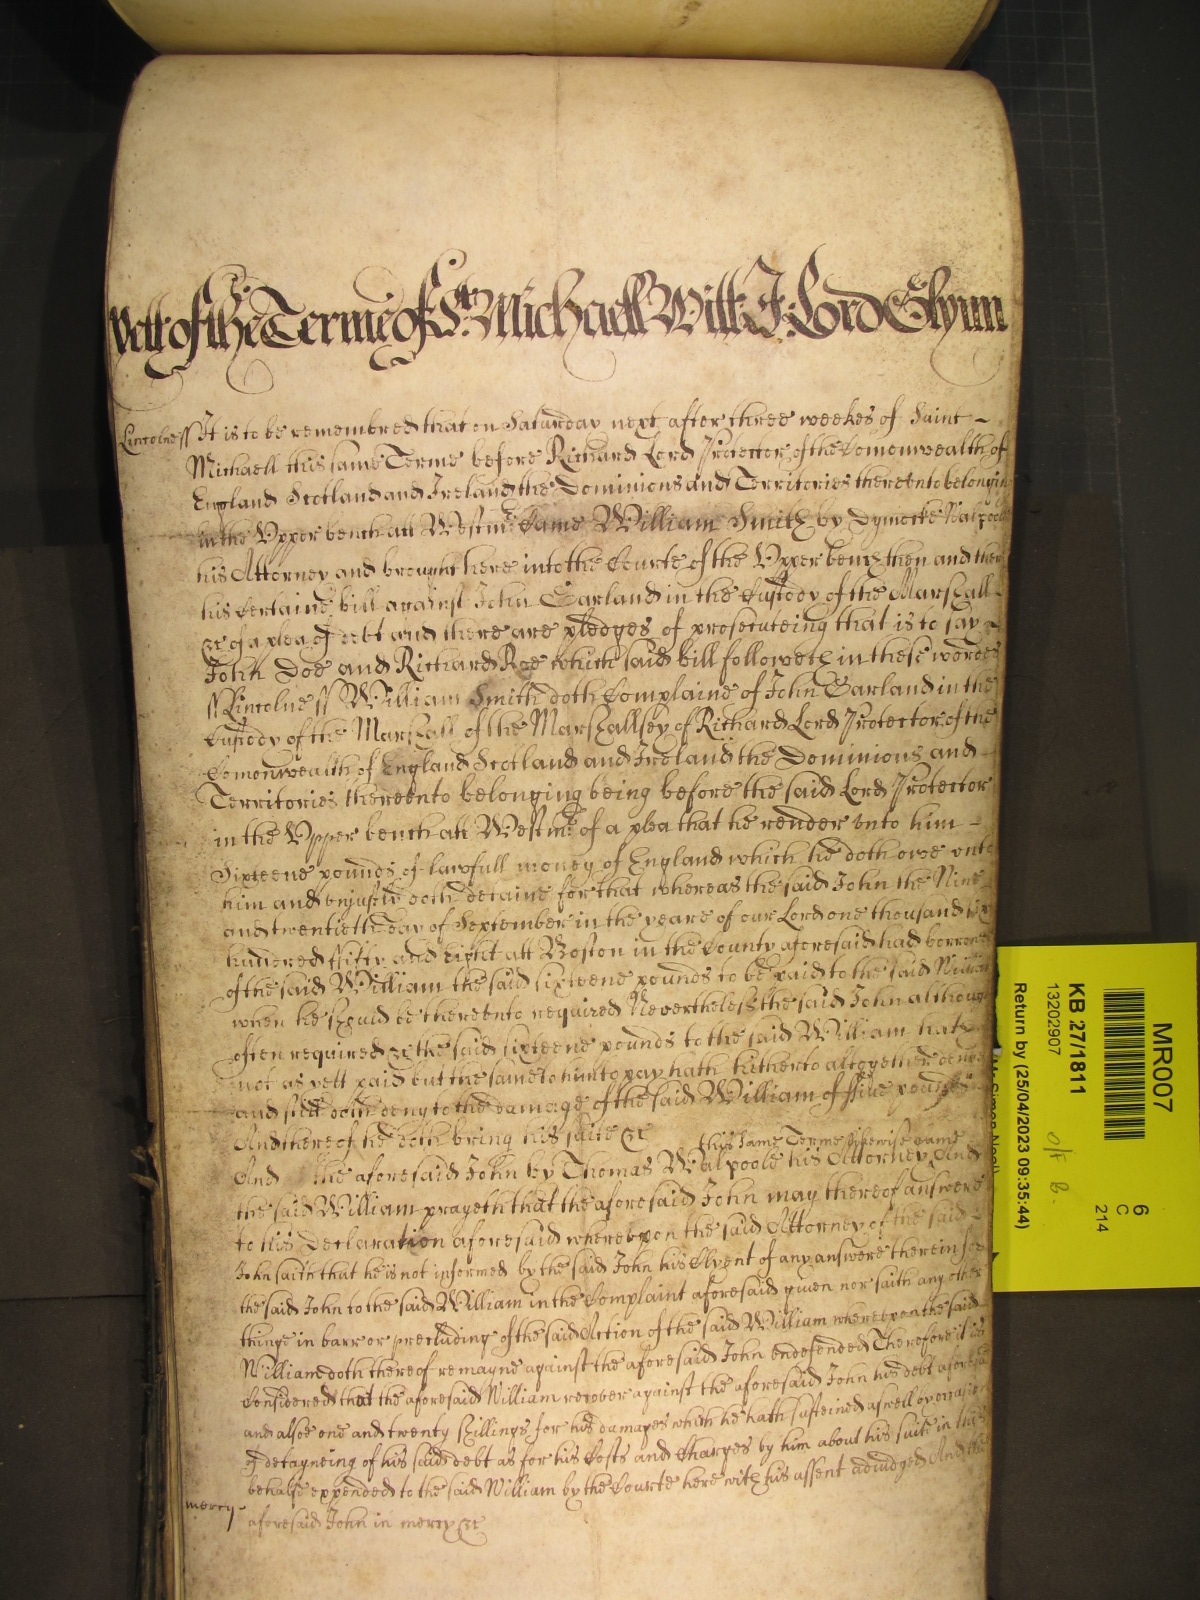 yett of the Terme of St. Michaell Witt: J: Lord Glynn
Lincolne ss It is to be remembred that on Saturday next after three weekes of Saint
Michaell this same Terme before Richard Lord Protector of the Comonwealth of
England Scotland and Ireland the Dominions and Territories thereunto belonging
in the Upper bench att Westmr. Came William Smith by Dymocke Walpoole
his Attorney and brought here into the Courte of the Upper bench then and there
his Certaine bill against John Garland in the Custody of the Marshall
&c of a plea of debt and there are pledges of prosecuteing that is to say
John Doe and Richard Roe which said bill followeth in these wordes
ss Lincolne ss William Smith doth Complaine of John Garland in the
Custody of the Marshall of the Marshallsey of Richard Lord Protector of the
Comonwealth of England Scotland and Ireland the Dominions and
Territories thereunto belonging being before the said Lord Protector
in the Upper bench att Westmr. of a plea that he render unto him
Sixteene pounds of lawfull money of England which he doth owe unto
him and unjustly doth detaine for that whereas the said John the Nine
and twentieth day of September in the yeare of our Lord one thousand six
hundred fifty and Eight att Boston in the County aforesaid had borrowed
of the said William the said sixteene pounds to be paid to the said William
when he should be thereunto required Nevertheless the said John although
often required &c the said sixteene pounds to the said William hath
not as yett paid but the same to him to pay hath hitherto altogether denyed
and still doth deny to the damage of the said William of ffive pounds
And thereof he doth bring his suite &c
this same Terme likewise came
And the aforesaid John by Thomas Walpoole his Attorney And
the said William prayeth that the aforesaid John may thereof answere
to his Declaration aforesaid whereupon the said Attorney of the said
John saith that he is not informed by the said John his Clyent of any answere therein for
the said John to the said William in the Complaint aforesaid given nor saith any other
thinge in barr or precluding of the said Action of the said William whereupon the said
William doth thereof remayne against the aforesaid John undefended Therefore it is
Considered that the aforesaid William recover against the aforesaid John his debt aforesaid
and alsoe one and twenty shillings for his damages which he hath susteined aswell by occasion
of detayneing of his said debt as for his Costs and Charges by him about his suite in this
behalfe expended to the said William by the Courte here with his assent adiudged And the
mercy
aforesaid John in mercy &c
MR007
6
C
214
KB 27/1811
13202907
O/F B.
Return by (25/04/2023 09:35:44)